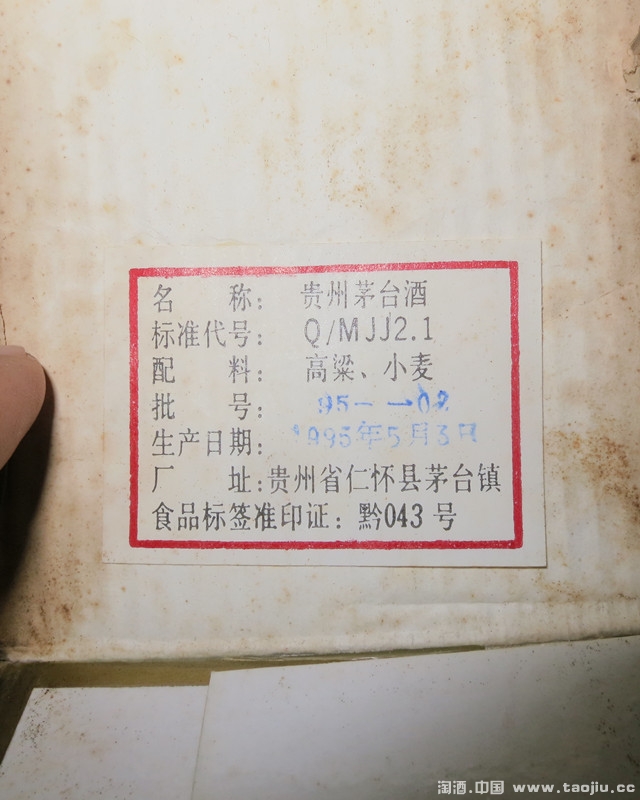 名 称： 贵州茅台酒
标准代号： Q/MJJ2.1
配 料： 高粱、小麦
批 号： 95- →02
生产日期： 1995年5月3日
厂 址：贵州省仁怀县茅台镇
食品标签准印证：黔043号
淘酒.中国 www.taojiu.cc